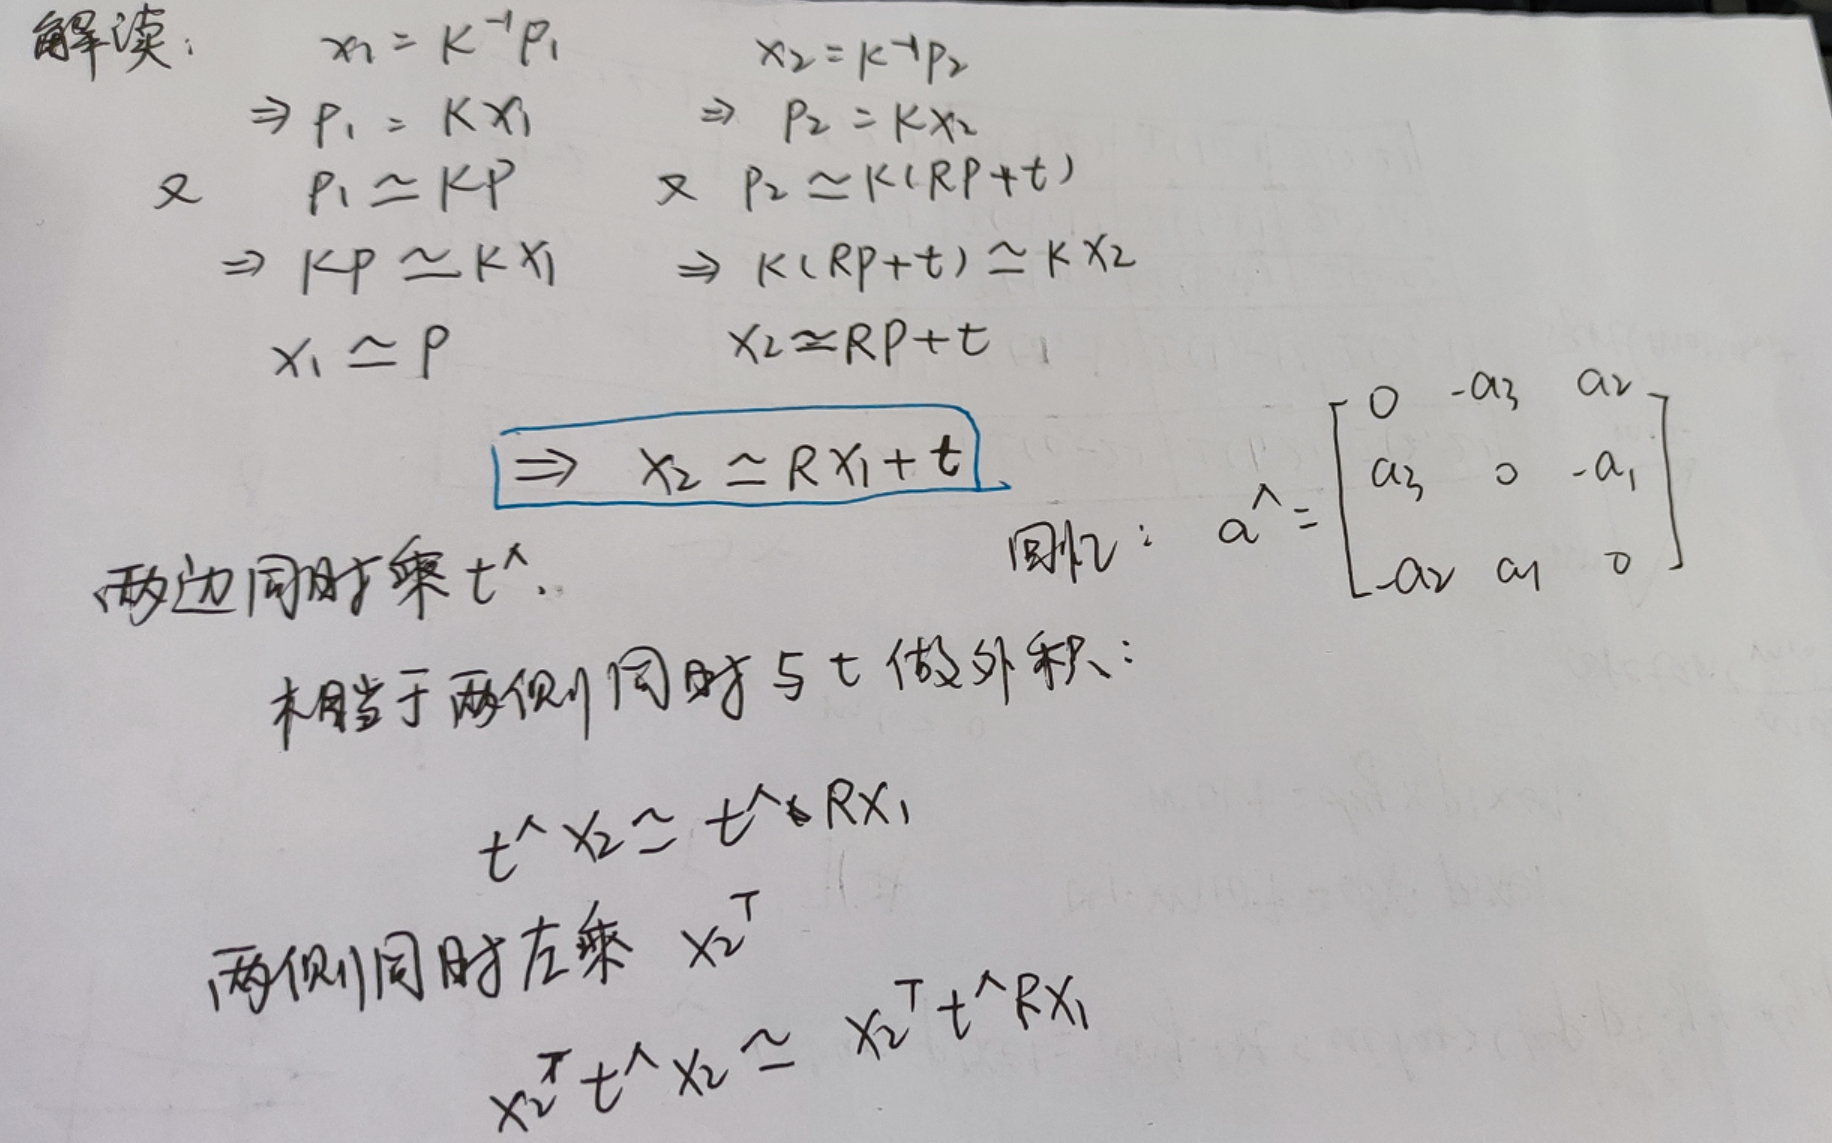 解读: x₁ = K⁻¹P₁ x₂ = K⁻¹P₂
⇒ P₁ = KX₁ ⇒ P₂ = KX₂
又 P₁ ≃ KP 又 P₂ ≃ K(RP+t)
⇒ KP ≃ KX₁ ⇒ K(RP+t) ≃ KX₂
X₁ ≃ P X₂ ≃ RP+t
⇒ X₂ ≃ RX₁+t
回忆: a^ = [0 -a₃ a₂
a₃ 0 -a₁
-a₂ a₁ 0]
两边同时乘 t^.
相当于两侧同时与 t 做外积:
t^X₂ ≃ t^RX₁
两侧同时左乘 X₂ᵀ
X₂ᵀt^X₂ ≃ X₂ᵀt^RX₁